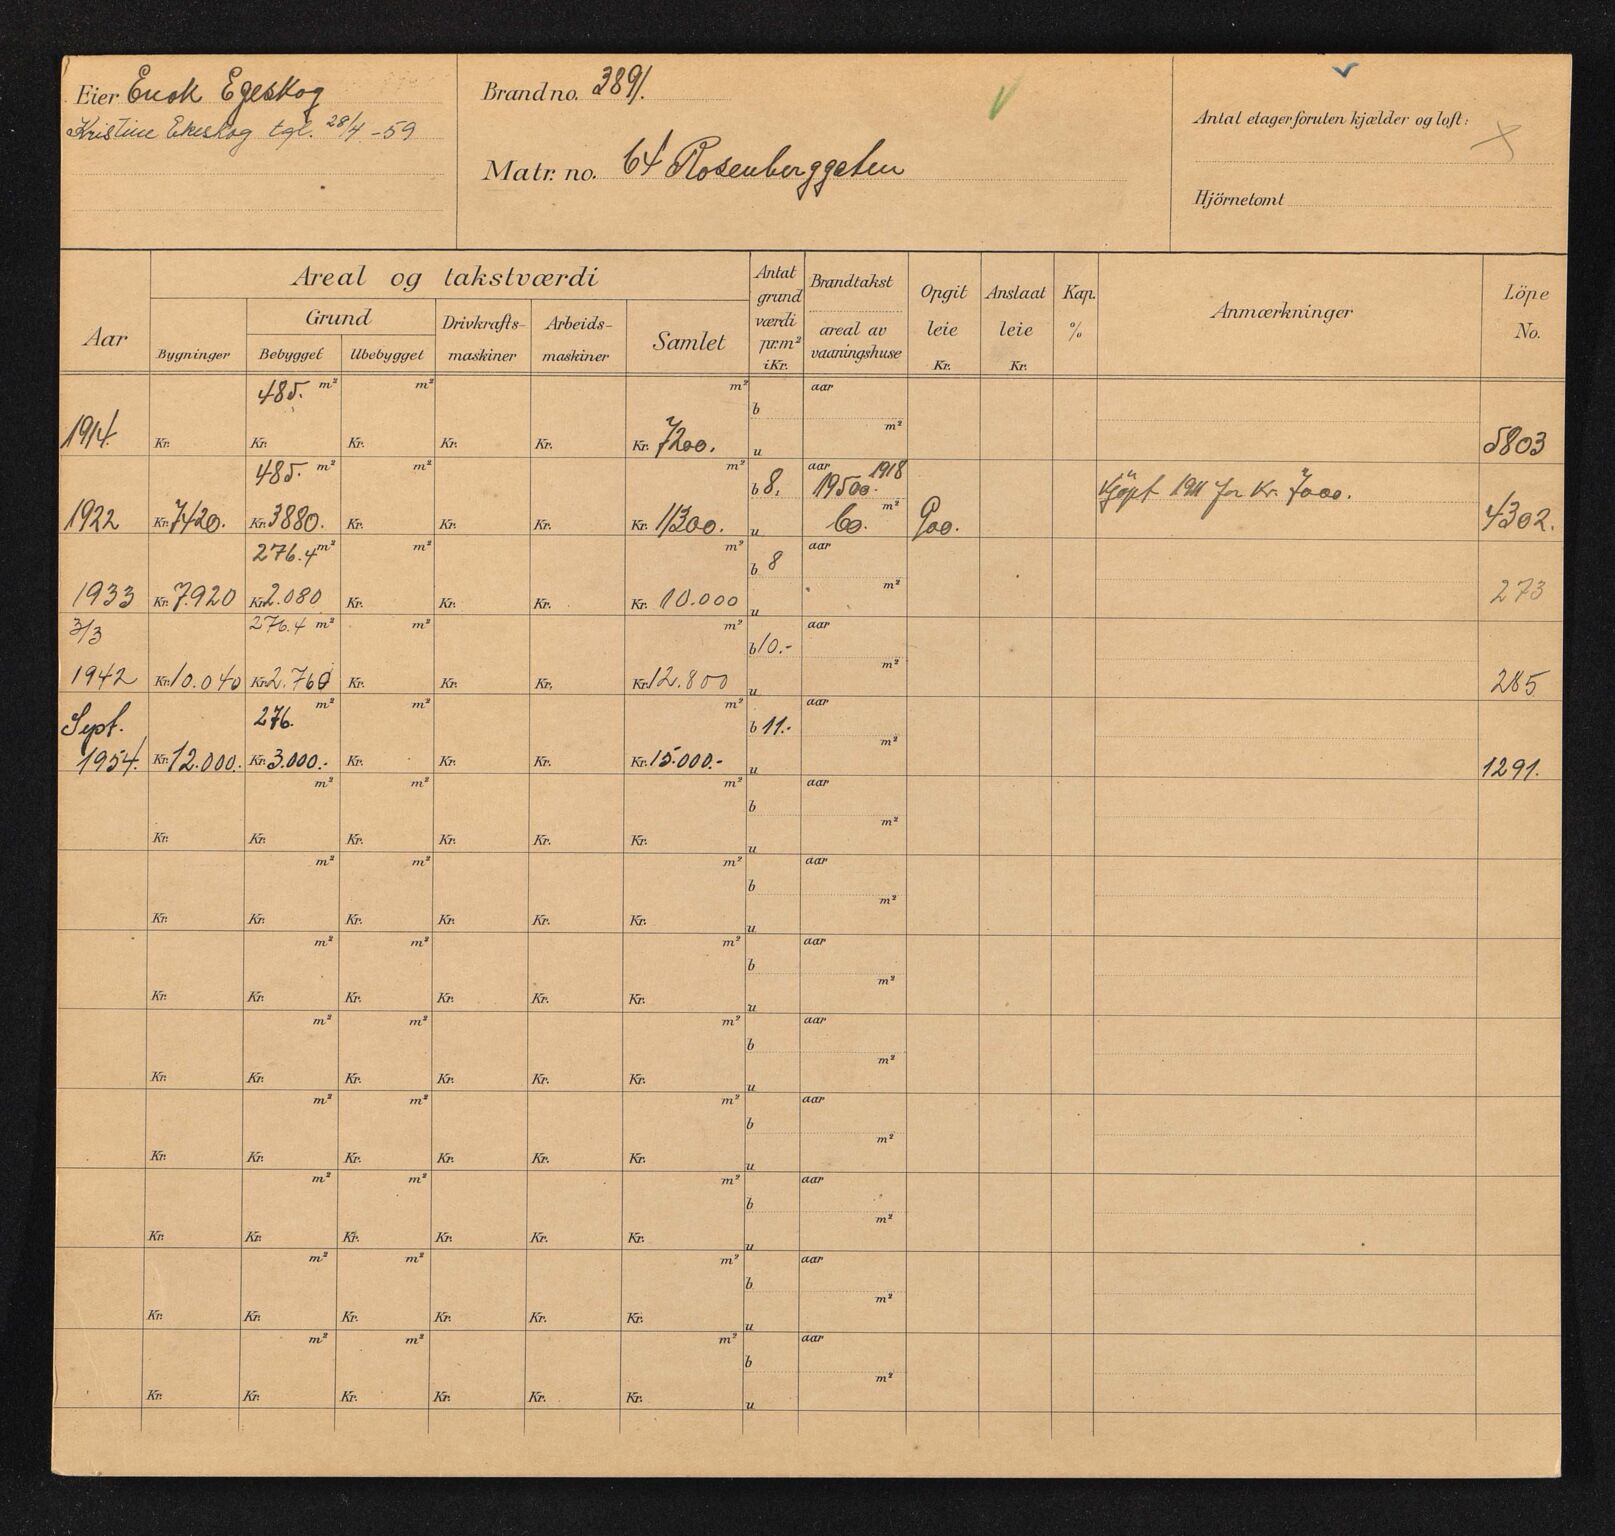 Eier Enok Egeskog
Kristine Ekeskog tgl. 28/4 -59
Brand no. 3891.
Matr. no. 64 Rosenberggaten
Antal etager foruten kjælder og loft:
Hjörnetomt
Aar
Areal og takstværdi
Bygninger
Grund
Bebygget
Ubebygget
Drivkrafts-
maskiner
Arbeids-
maskiner
Samlet
Antat
grund
værdi
pr.m²
i Kr.
Brandtakst
areal av
vaaningshuse
Opgit
leie
Kr.
Anslaat
leie
Kr.
Kap.
%
Anmærkninger
Löpe
No.
485. m² m² m² aar
b
m²
1914. Kr. Kr. Kr. Kr. Kr. Kr. 7200. u 5803
485. m² m² m² aar 1918
b 8. 19500. Kjöpt 1911 for Kr. 7000.
m²
1922 Kr. 7420. Kr. 3880. Kr. Kr. Kr. Kr. 11300. u 60. 900. 4302.
276.4 m² m² m² aar
b 8
m²
1933 Kr. 7.920 Kr. 2.080 Kr. Kr. Kr. Kr. 10.000 u 273
3/3 276.4 m² m² m² aar
b 10.-
m²
1942 Kr. 10.040 Kr. 2.760 Kr. Kr. Kr. Kr. 12.800 u 285
Sept. 276. m² m² m² aar
b 11.-
m²
1954. Kr. 12.000.- Kr. 3.000.- Kr. Kr. Kr. Kr. 15.000.- u 1291.
m² m² m² aar
b
m²
Kr. Kr. Kr. Kr. Kr. Kr. u
m² m² m² aar
b
m²
Kr. Kr. Kr. Kr. Kr. Kr. u
m² m² m² aar
b
m²
Kr. Kr. Kr. Kr. Kr. Kr. u
m² m² m² aar
b
m²
Kr. Kr. Kr. Kr. Kr. Kr. u
m² m² m² aar
b
m²
Kr. Kr. Kr. Kr. Kr. Kr. u
m² m² m² aar
b
m²
Kr. Kr. Kr. Kr. Kr. Kr. u
m² m² m² aar
b
m²
Kr. Kr. Kr. Kr. Kr. Kr. u
m² m² m² aar
b
m²
Kr. Kr. Kr. Kr. Kr. Kr. u